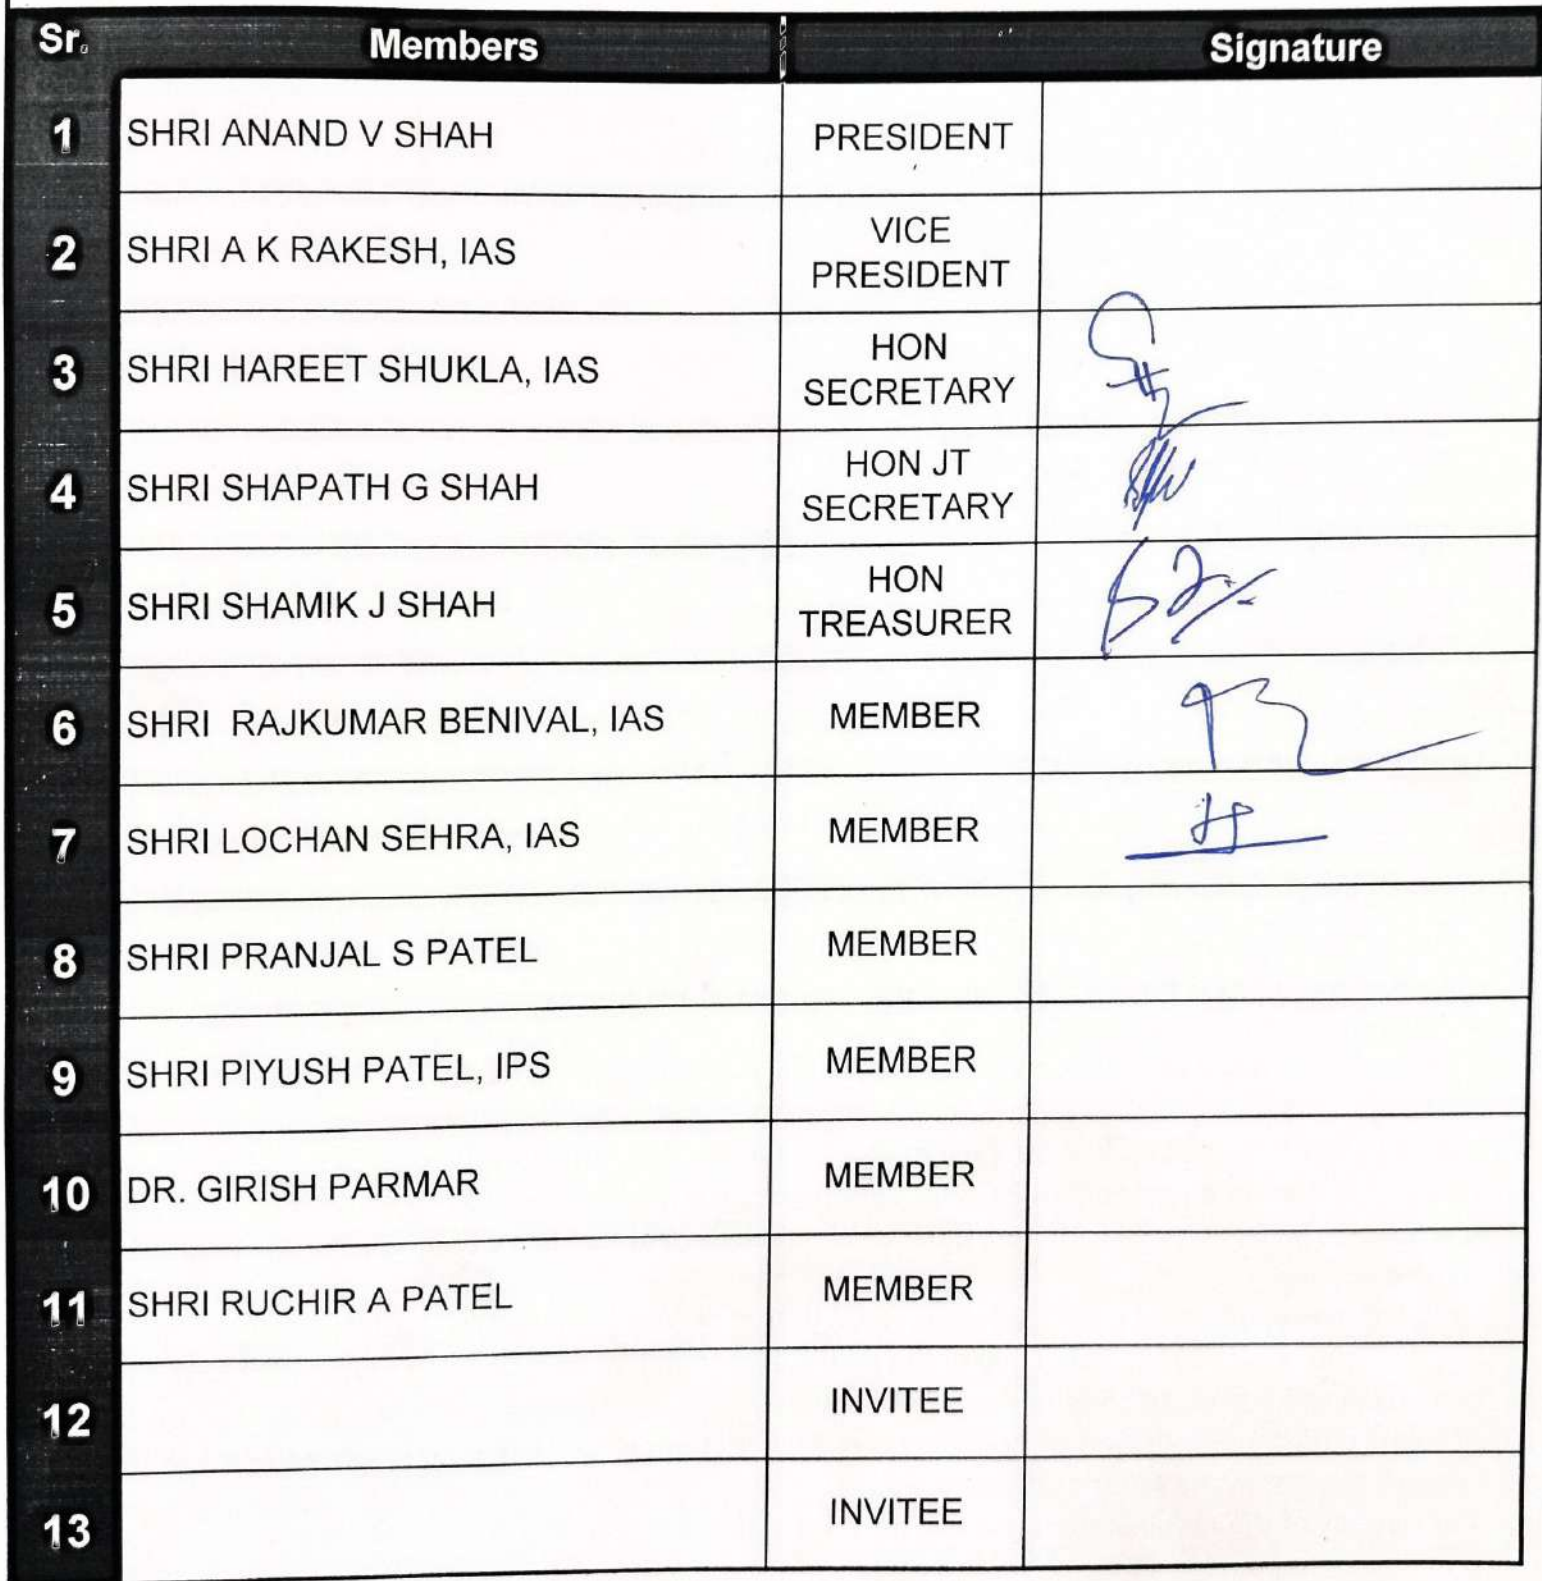 Sr. Members Signature
1 SHRI ANAND V SHAH PRESIDENT
2 SHRI A K RAKESH, IAS VICE
PRESIDENT
3 SHRI HAREET SHUKLA, IAS HON
SECRETARY
4 SHRI SHAPATH G SHAH HON JT
SECRETARY
5 SHRI SHAMIK J SHAH HON
TREASURER
6 SHRI RAJKUMAR BENIVAL, IAS MEMBER
7 SHRI LOCHAN SEHRA, IAS MEMBER
8 SHRI PRANJAL S PATEL MEMBER
9 SHRI PIYUSH PATEL, IPS MEMBER
10 DR. GIRISH PARMAR MEMBER
11 SHRI RUCHIR A PATEL MEMBER
12 INVITEE
13 INVITEE